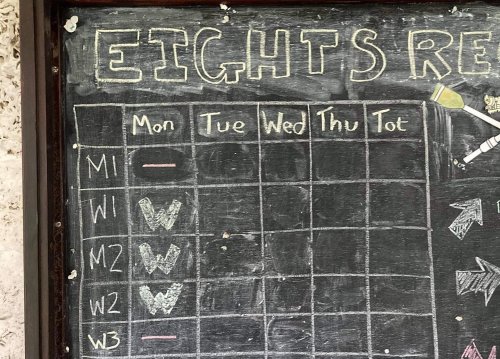 EIGHTS RE
Mon Tue Wed Thu Tot
M1 —
W1 W
M2 W
W2 W
W3 —